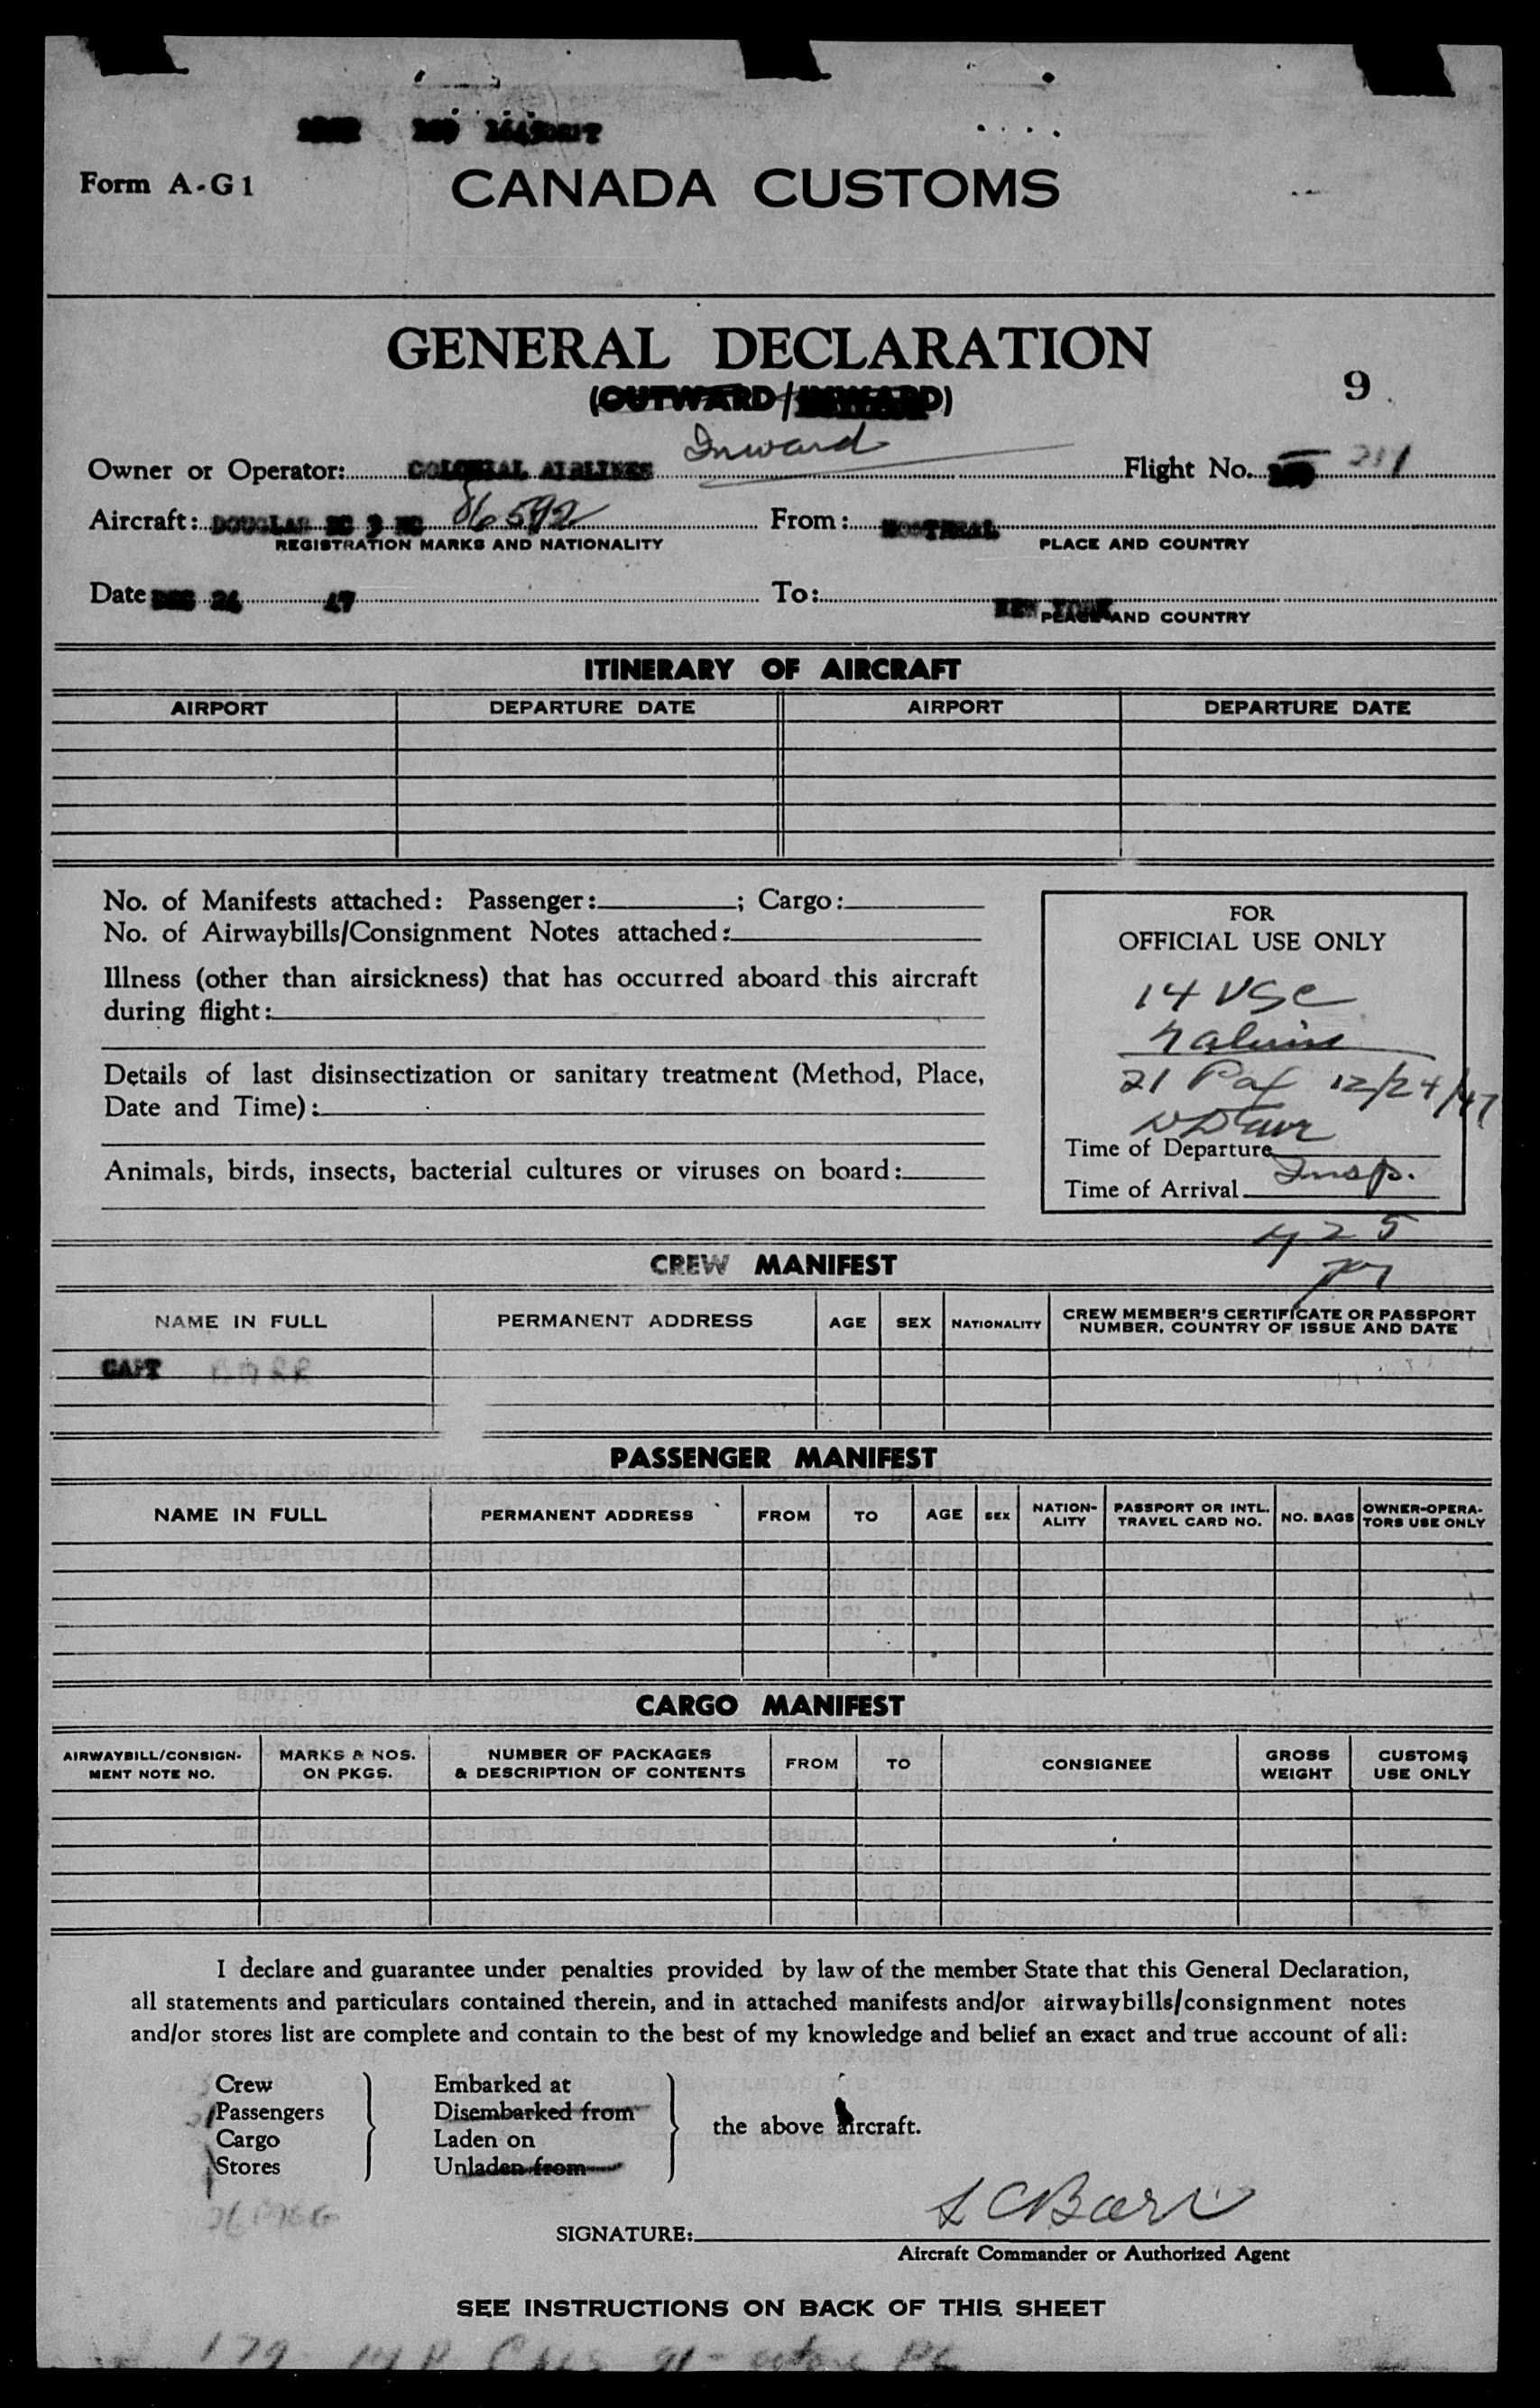 Form A-G1
CANADA CUSTOMS
GENERAL DECLARATION
(OUTWARD/INWARD)
9
Inward
Owner or Operator: COLONIAL AIRLINES Flight No. 211
Aircraft: DOUGLAS DC 3 NC 86592 From: MONTREAL
REGISTRATION MARKS AND NATIONALITY PLACE AND COUNTRY
Date DEC 24 47 To: NEW YORK
PLACE AND COUNTRY
ITINERARY OF AIRCRAFT
AIRPORT DEPARTURE DATE AIRPORT DEPARTURE DATE
No. of Manifests attached: Passenger: ; Cargo:
No. of Airwaybills/Consignment Notes attached:
Illness (other than airsickness) that has occurred aboard this aircraft
during flight:
Details of last disinsectization or sanitary treatment (Method, Place,
Date and Time):
Animals, birds, insects, bacterial cultures or viruses on board:
FOR
OFFICIAL USE ONLY
14 USC
21 Pax 12/24/47
Time of Departure
Insp.
Time of Arrival
425
CREW MANIFEST
NAME IN FULL PERMANENT ADDRESS AGE SEX NATIONALITY CREW MEMBER'S CERTIFICATE OR PASSPORT
NUMBER, COUNTRY OF ISSUE AND DATE
CAPT BARR
PASSENGER MANIFEST
NAME IN FULL PERMANENT ADDRESS FROM TO AGE SEX NATION-
ALITY PASSPORT OR INTL.
TRAVEL CARD NO. NO. BAGS OWNER-OPERA-
TORS USE ONLY
CARGO MANIFEST
AIRWAYBILL/CONSIGN-
MENT NOTE NO. MARKS & NOS.
ON PKGS. NUMBER OF PACKAGES
& DESCRIPTION OF CONTENTS FROM TO CONSIGNEE GROSS
WEIGHT CUSTOMS
USE ONLY
I declare and guarantee under penalties provided by law of the member State that this General Declaration,
all statements and particulars contained therein, and in attached manifests and/or airwaybills/consignment notes
and/or stores list are complete and contain to the best of my knowledge and belief an exact and true account of all:
Crew Embarked at
Passengers Disembarked from
the above aircraft.
Cargo Laden on
Stores Unladen from
L C Barr
SIGNATURE:
Aircraft Commander or Authorized Agent
SEE INSTRUCTIONS ON BACK OF THIS SHEET